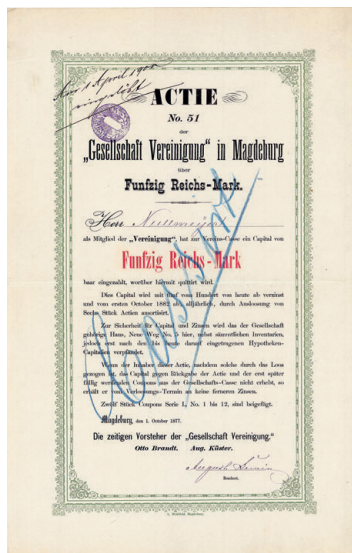 Am 1 April 1905
eingelöst
ACTIE
No. 51
der
„Gesellschaft Vereinigung“ in Magdeburg
über
Funfzig Reichs-Mark.
Herr
als Mitglied der „Vereinigung“, hat zur Vereins-Casse ein Capital von
Funfzig Reichs-Mark
baar eingezahlt, worüber hiermit quittirt wird.
Dies Capital wird mit fünf vom Hundert von heute ab verzinst
und vom ersten October 1882 ab, alljährlich, durch Ausloosung von
Sechs Stück Actien amortisirt.
Zur Sicherheit für Capital und Zinsen wird das der Gesellschaft
gehörige Haus, Neue Weg No. 5 hier, nebst sämmtlichen Inventarien,
jedoch erst nach den bis heute darauf eingetragenen Hypotheken-
Capitalien verpfändet.
Wenn der Inhaber dieser Actie, nachdem solche durch das Loos
gezogen ist, das Capital gegen Rückgabe der Actie und der erst später
fällig werdenden Coupons aus der Gesellschafts-Casse nicht erhebt, so
erhält er vom Verloosungs-Termin an keine ferneren Zinsen.
Zwölf Stück Coupons Serie I, No. 1 bis 12, sind beigefügt.
Magdeburg, den 1. October 1877.
Die zeitigen Vorsteher der „Gesellschaft Vereinigung.“
Otto Brandt. Aug. Küster.
August
Rendant.